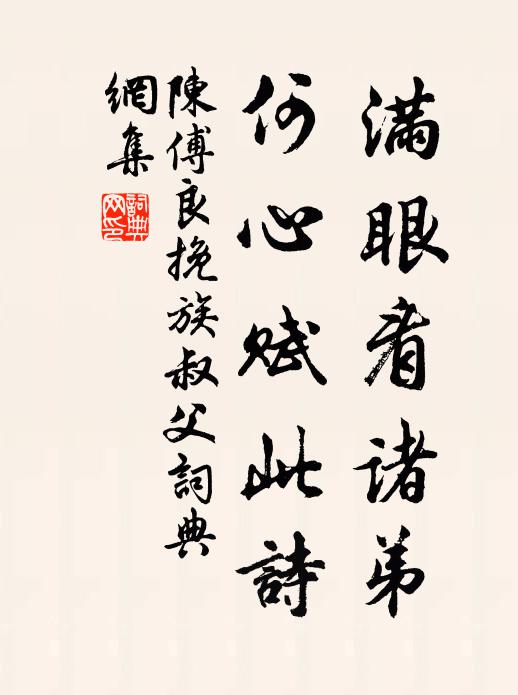 滿眼看诸弟
何心赋此詩
陳傅良挽族叔父詞典
網集
詞典
网印